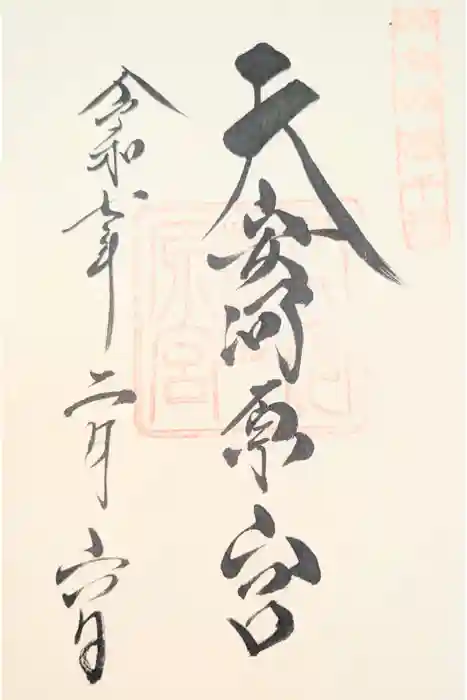 天安河原宮
令和七年二月六日